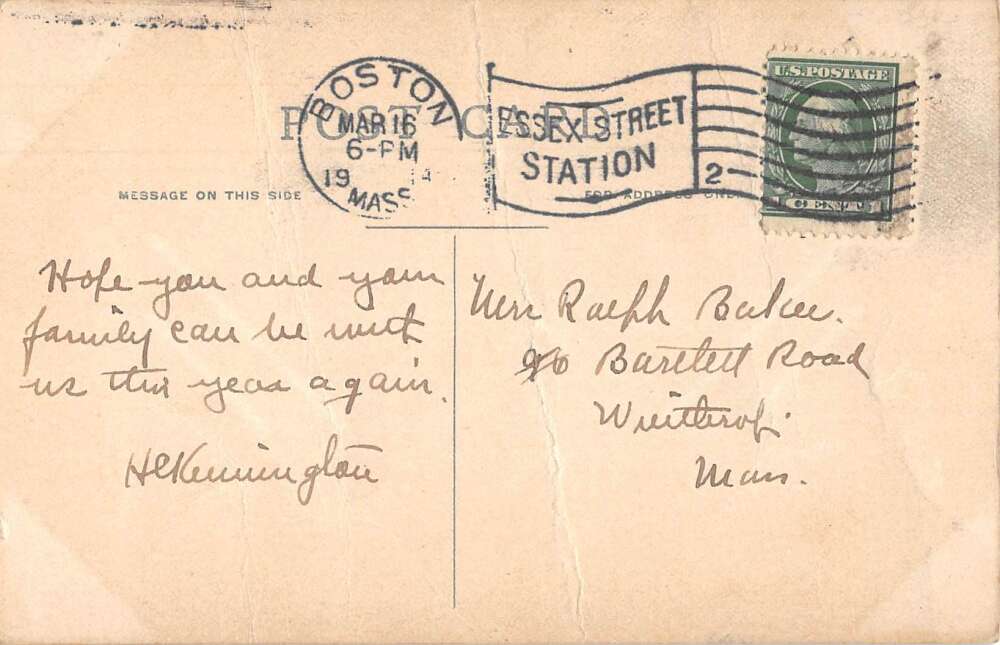 BOSTON
MAR 16
6-PM
19 14
MASS
ESSEX STREET
STATION
2
U.S. POSTAGE
POST CARD
MESSAGE ON THIS SIDE
FOR ADDRESS ONLY
Hope you and your
family can be with
us this year again.
HCKennington
Mrs Ralph Baker.
96 Bartlett Road
Winthrop.
Mass.